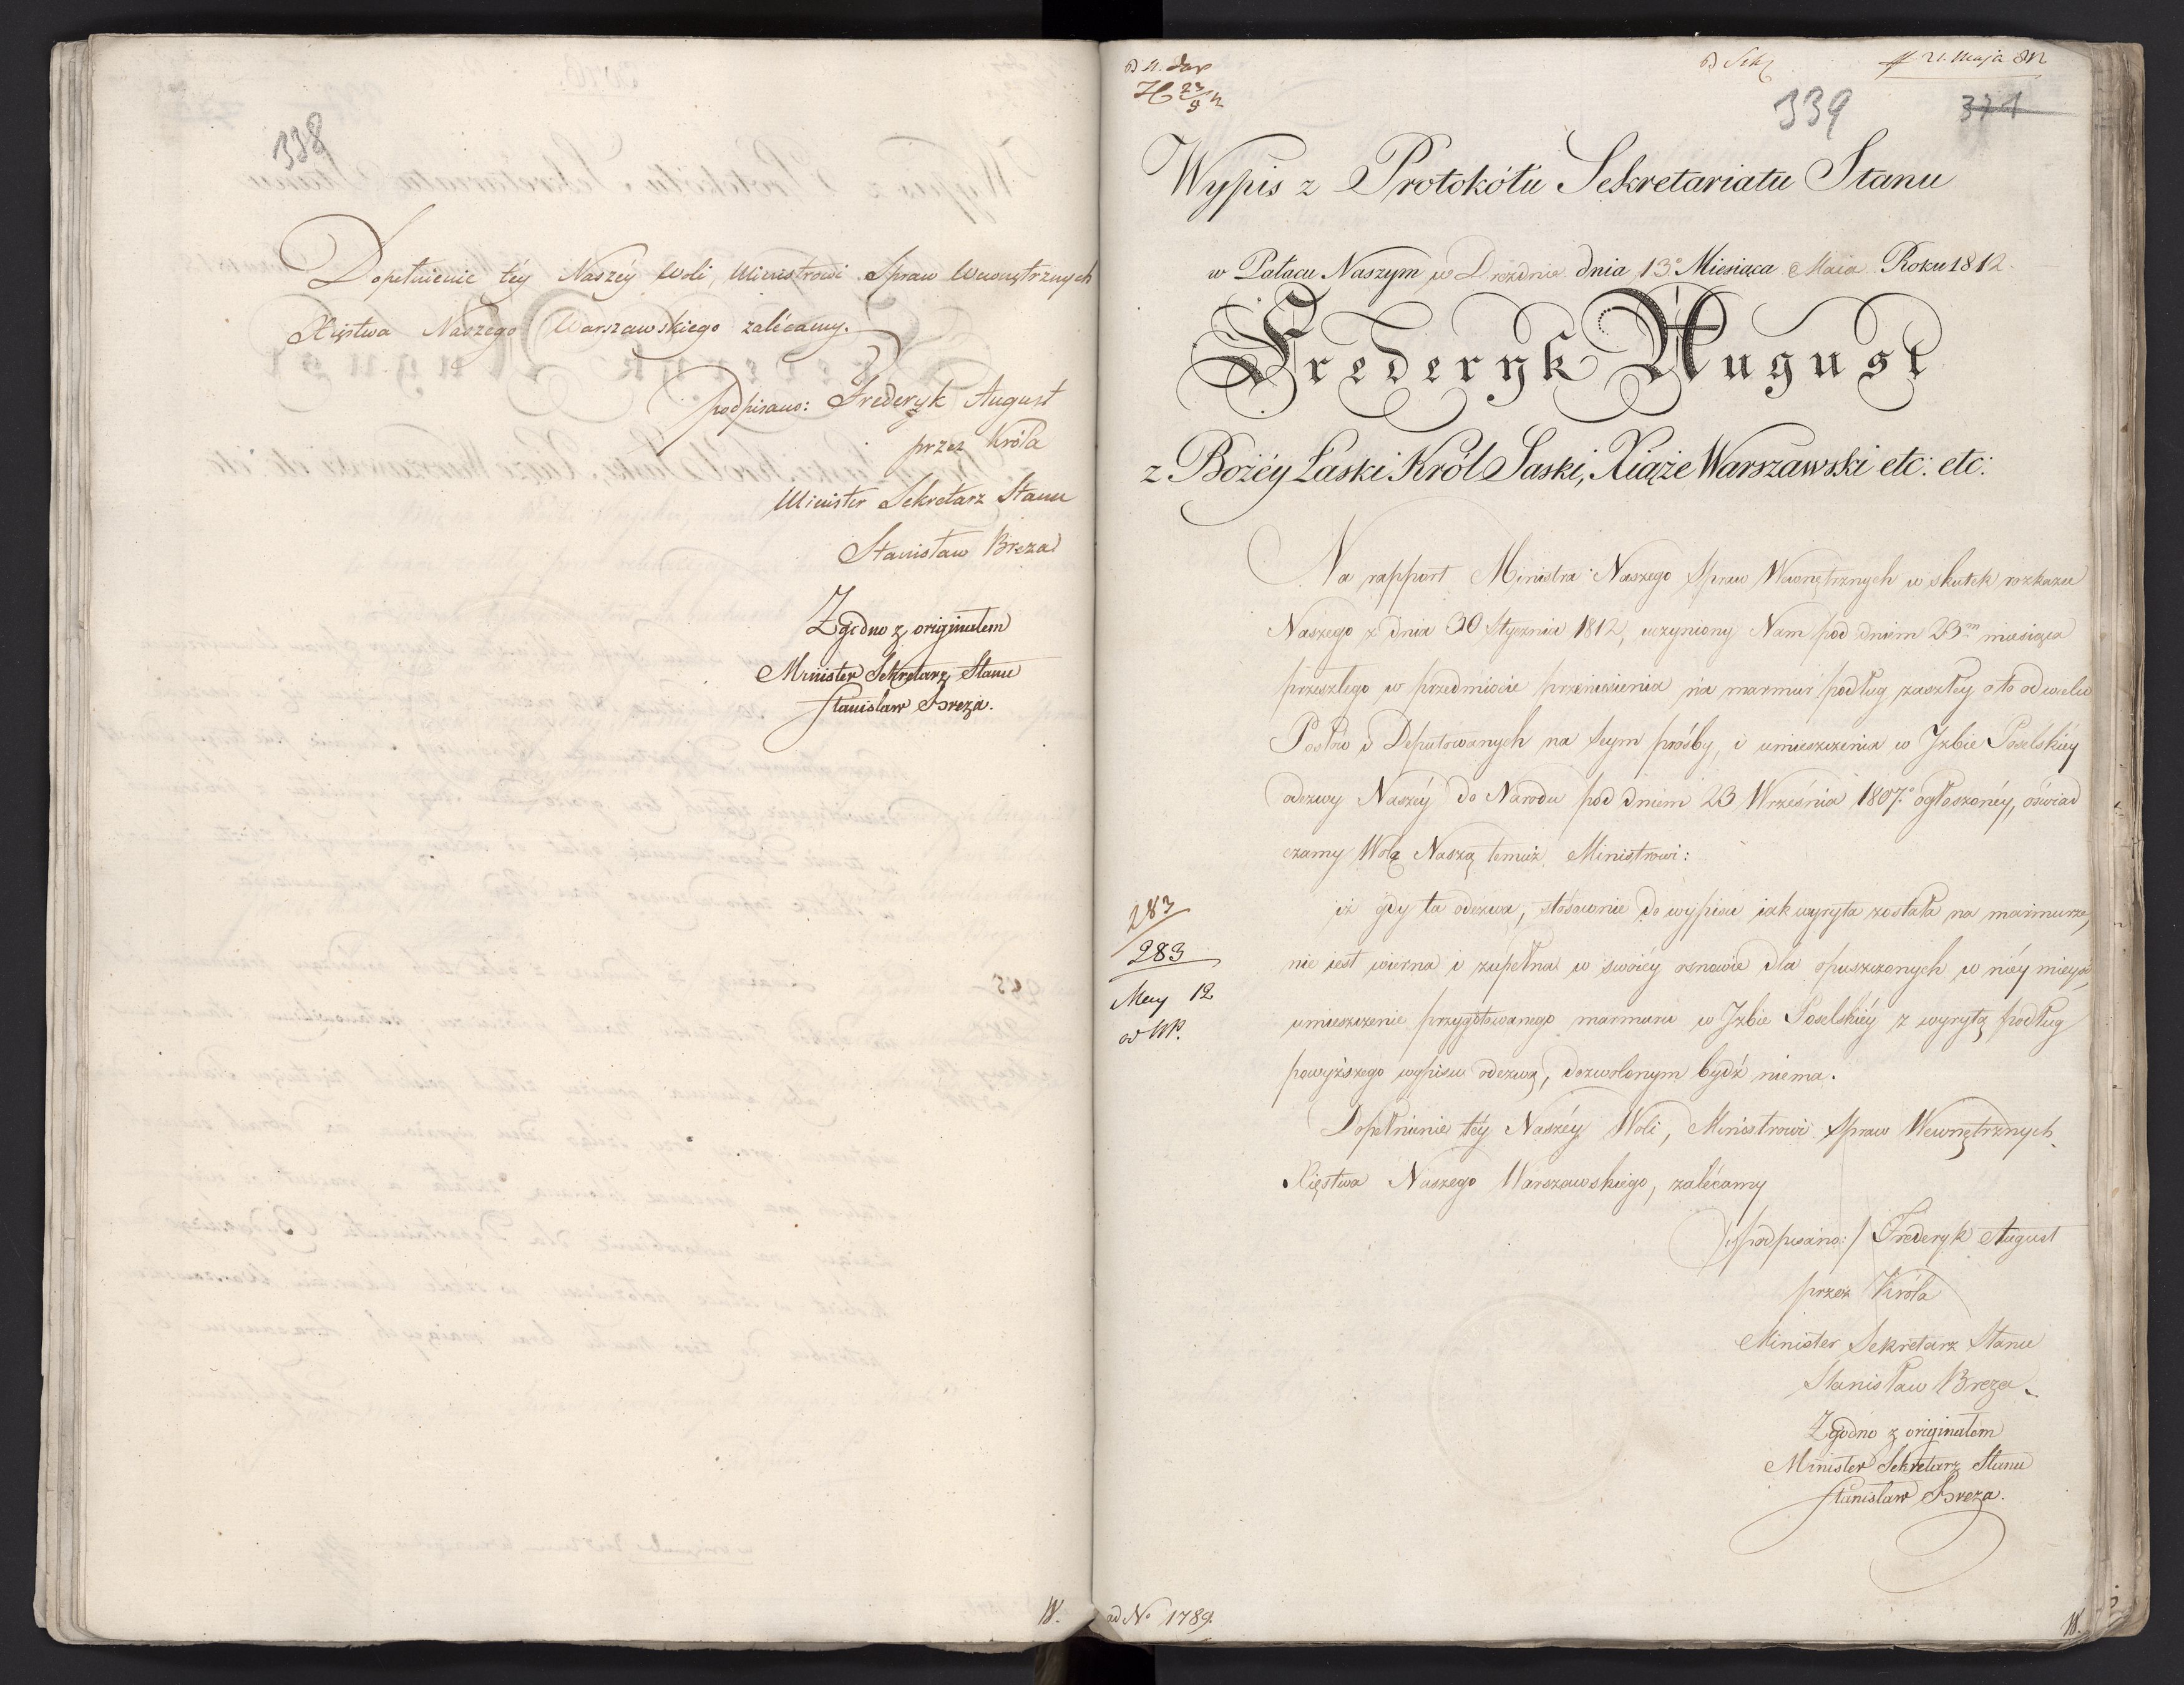 338
Dopełnienie téy Naszéy Woli, Ministrowi Spraw Wewnętrznych
Xięstwa Naszego Warszawskiego zalécamy.
podpisano: Frederyk August
przez Króla
Minister Sekretarz Stanu
Stanisław Breza
Zgodno z originałem
Minister Sekretarz Stanu
Stanisław Breza.
W.
21. Maja 812
339
371
Wypis z Protokółu Sekretariatu Stanu
w Pałacu Naszym w Dreźdnie dnia 13º Miesiąca Maia Roku 1812.
Frederyk August
z Bożéy Łaski Król Saski, Xiąże Warszawski etc: etc:
Na rapport Ministra Naszego Spraw Wewnętrznych w skutek rozkazu
Naszego z dnia 30 Stycznia 1812, uczyniony Nam pod dniem 23m miesiąca
przeszłego w przedmiocie przeniesienia na marmur podług zaszłéy o to od wielu
Posłów i Deputowanych na Seym prośby, i umieszczenia w Izbie Poselskiéy
odezwy Naszéy do Narodu pod dniem 23 Września 1807º ogłoszonéy, oświad
czamy Wolą Naszą temuż Ministrowi:
iż gdy ta odezwa, stósownie do wypisu iak wyryta została na marmurze,
nie iest wierna i zupełna w swoiéy osnowie dla opuszczonych w niéy mieysc,
umieszczenie przygotowanego marmuru w Izbie Poselskiéy z wyrytą podług
powyższego wypisu odezwą, dozwolonym bydź niema.
283
283
May 12
Dopełnienie téy Naszéy Woli, Ministrowi Spraw Wewnętrznych
Xięstwa Naszego Warszawskiego, zalécamy
/:podpisano:/ Frederyk August
przez Króla
Minister Sekretarz Stanu
Stanisław Breza.
Zgodno z originałem
Minister Sekretarz Stanu
Stanisław Breza.
ad No 1789.
W.